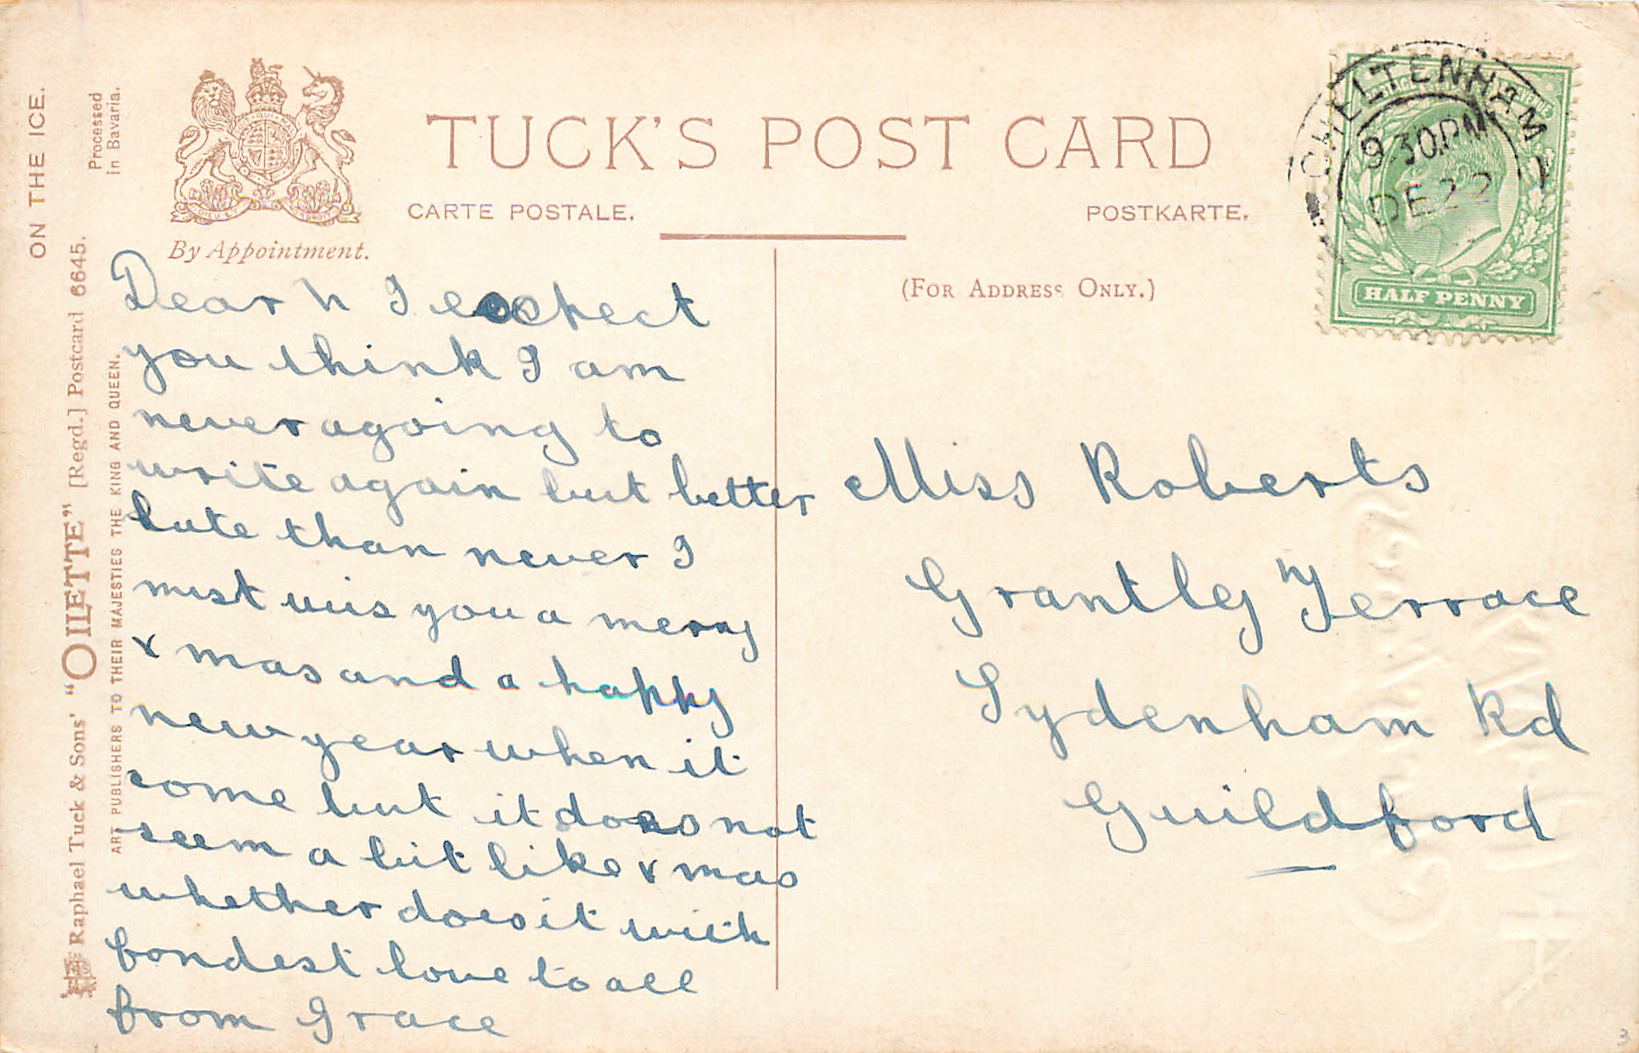 ON THE ICE.
Processed
in Bavaria.
Raphael Tuck & Sons' "OILETTE" [Regd.] Postcard 6645.
ART PUBLISHERS TO THEIR MAJESTIES THE KING AND QUEEN.
By Appointment.
TUCK'S POST CARD
CARTE POSTALE.
POSTKARTE.
(FOR ADDRESS ONLY.)
CHELTENHAM
9.30PM
DE 22
HALF PENNY
Dear N I expect
you think I am
never agoing to
write again but better
late than never I
must wis you a merry
xmas and a happy
new year when it
come but it does not
seem a bit like xmas
whether does it with
fondest love to all
from Grace
Miss Roberts
Grantley Terrace
Sydenham Rd
Guildford
3